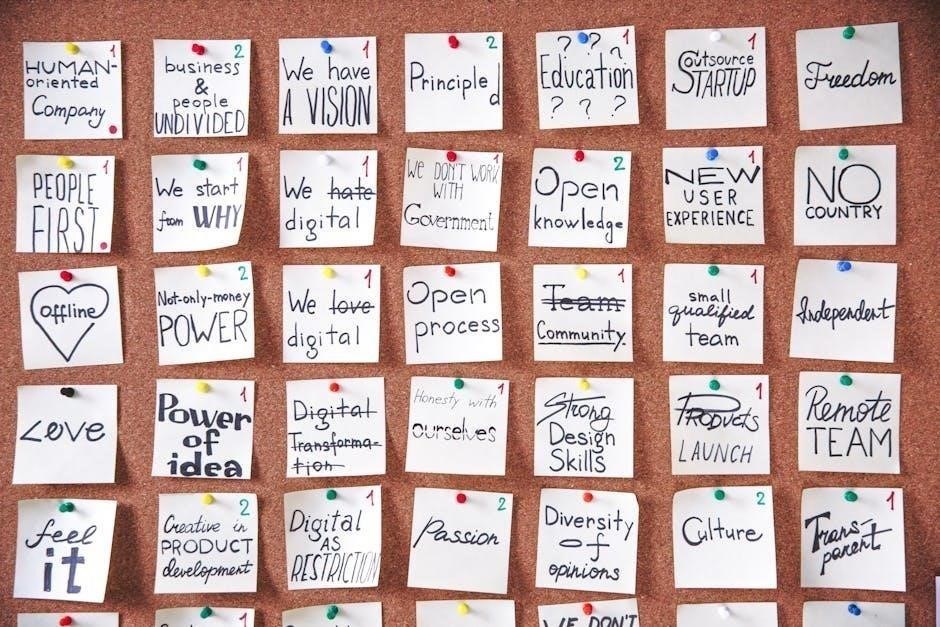 HUMAN- 1
oriented
Company
business 2
&
people
UNDIVIDED
We have 1
A VISION
Principled 2
? ? ? 1
Education
? ? ?
Outsource 1
STARTUP
Freedom 2
PEOPLE 1
FIRST.
We start 1
from WHY
We hate 1
digital
We DON'T WORK 1
WITH
Government
Open 2
knowledge
NEW 1
USER
EXPERIENCE
NO
COUNTRY
offline
Not-only-money 2
POWER
We love 1
digital
Open
process
Team 1
Community
small 1
qualified
team
Independent
Love
Power 1
of
idea
Digital
Transforma-
tion
Honesty with 1
ourselves
Strong
Design
Skills
Products 1
LAUNCH
Remote
TEAM
feel
it
Creative in 2
PRODUCT
development
Digital 1
AS
RESTRICTION
Passion 2
Diversity
of
opinions
Culture 2
Trans- 1
parent
2
1
WE DON'T